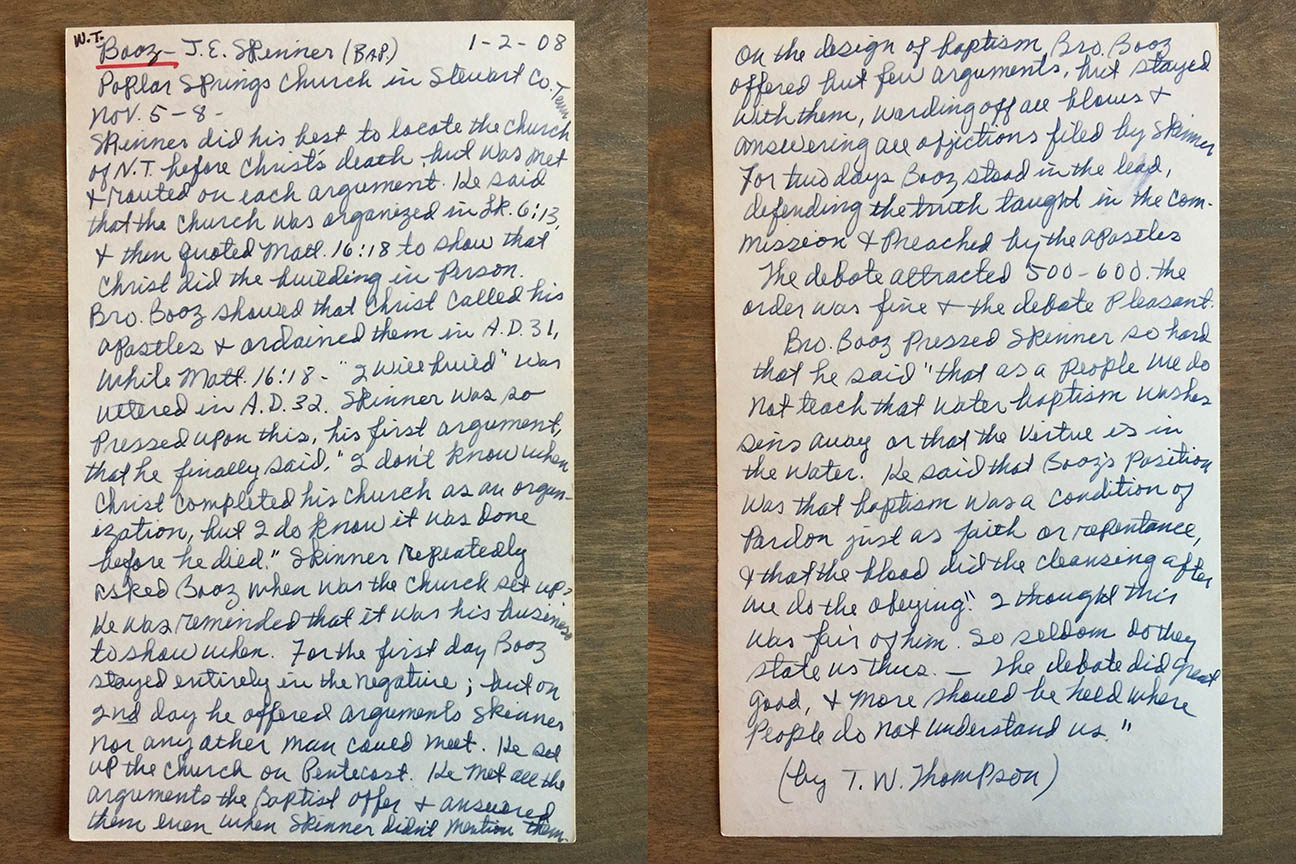 W.T.
Booz - J.E. Skinner (BAP.) 1-2-08
Poplar Springs Church in Stewart Co. Tenn.
Nov. 5-8-
Skinner did his best to locate the church
of N.T. before Christ's death but was met
& routed on each argument. He said
that the church was organized in Lk. 6:13,
& then quoted Matt. 16:18 to show that
Christ did the building in person.
Bro. Booz showed that Christ called his
apostles & ordained them in A.D. 31,
while Matt. 16:18 - "I will build" was
uttered in A.D. 32. Skinner was so
pressed upon this, his first argument,
that he finally said, "I don't know when
Christ completed his church as an organ-
ization, but I do know it was done
before he died." Skinner repeatedly
asked Booz when was the church set up?
He was reminded that it was his business
to show when. For the first day Booz
stayed entirely in the negative; but on
2nd day he offered arguments Skinner
nor any other man could meet. He set
up the church on Pentecost. He met all the
arguments the Baptist offer & answered
them even when Skinner didn't mention them.
On the design of baptism, Bro. Booz
offered but few arguments, but stayed
with them, warding off all blows &
answering all objections filed by Skinner
For two days Booz stood in the lead,
defending the truth taught in the com-
mission & preached by the apostles
The debate attracted 500-600. the
order was fine & the debate pleasant.
Bro. Booz pressed Skinner so hard
that he said "that as a people we do
not teach that water baptism washes
sins away or that the virtue is in
the water. He said that Booz's position
was that baptism was a condition of
pardon just as faith or repentance,
& that the blood did the cleansing after
we do the obeying". I thought this
was fair of him. So seldom do they
state us thus. — The debate did great
good, & more should be held where
people do not understand us."
(by T.W. Thompson)